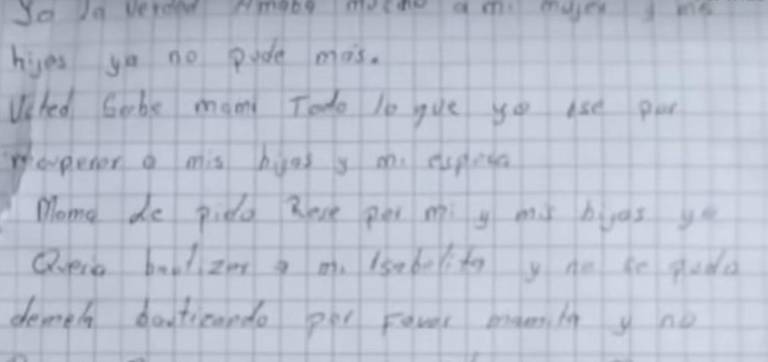 Yo la verdad Amaba mucho a mi mujer y mis
hijas ya no pude más.
Usted Sabe mami Todo lo que yo ise por
a mis hijas y mi esposa
Mama le pido Rese por mi y mis hijas yo
Queria bautizar a mi Isabelita y no se pudo
demela bauticando por Favor mamita y no